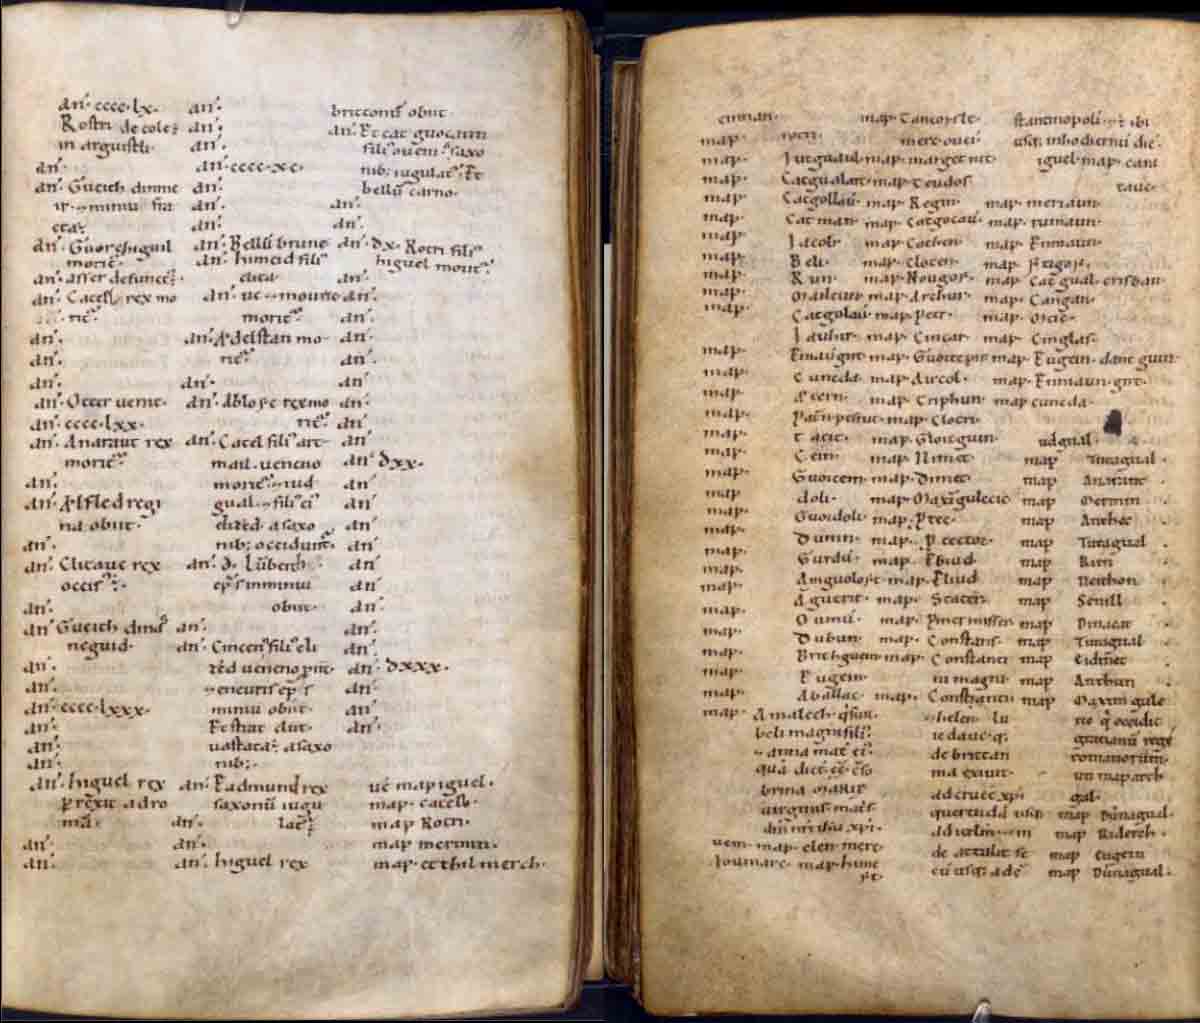 an̄. cccc.lx.
Rotri decole⁊
in arguistli.
an̄.
an̄. Gueith dinme
ir.
ecta⁊.
an̄. Guorchiguil
moritᷣ.
an̄. asser defunctᷣ⁊.
an̄. Catell rex mo
ritᷣ.
an̄.
an̄.
an̄.
an̄. Other uenit.
an̄. cccc.lxx.
an̄. Anaraut rex
moritᷣ.
an̄.
an̄. Ælfled regi
na obiit.
an̄.
an̄. Clitauc rex
occisᷣ⁊.
an̄.
an̄. Gueith dinas
neguid.
an̄.
an̄.
an̄. cccc.lxxx.
an̄.
an̄.
an̄.
an̄. higuel rex
p̄rexit ad ro
mā.
an̄.
an̄.
an̄.
an̄.
an̄.
an̄. cccc.xc.
an̄.
an̄.
an̄.
an̄. Bellū brune
an̄. himeid filiᷣ
clita
moritᷣ.
an̄. Ædelstan mo
ritᷣ.
an̄.
an̄. Abloyc rex mo
ritᷣ.
an̄. Catel filiᷣ art
mail. ueneno
moritᷣ. iud
gual. filiᷣ eiᷣ
elized. a saxo
nib; occidunt̄.
an̄. d. Lūberth
ep̄s in miniu
obiit.
an̄.
an̄. Cincenᷣ filiᷣ eli
zed ueneno
eneuris ep̄
miniu obiit.
Et strat clut
uastata⁊ a saxo
nib;.
an̄. Eadmund rex
saxonū iugu
latᷣ⁊.
an̄.
an̄.
an̄. higuel rex
brittonū obiit
an̄. Et cat guocaun
filiᷣ ouem. saxo
nib; iugulatᷣ. Et
bellū carno.
an̄.
an̄.
an̄. dx. Rotri filiᷣ
higuel moritᷣ.
an̄.
an̄.
an̄.
an̄.
an̄.
an̄
an̄
an̄.
an̄
an̄ dxx.
an̄
an̄
an̄
an̄
an̄
an̄
an̄.
an̄.
an̄.
an̄. dxxx.
an̄
an̄.
an̄.
uē map iguel.
map. catell.
map Rotri.
map mermin.
map. etthil merch.
cinnan.
map. rotri.
map. Iutguaul.
map. Catgualart.
map. Catgollaū.
map. Cat man.
map. Iacob.
map. Beli.
map. Run.
map. Mailcun.
map. Catgolaū.
Iauhir.
map. Einiaugirt.
map. Cuneda.
map. Ætern.
map. Patern pesrut.
map. Tacit.
map. Cein.
map. Guorcein.
map doli.
map. Guordoli.
map. Dumn.
map. Gurdū.
map. Amguoloyt.
map. Amguerit.
map. Oumū.
map. Dubun.
map. Brithguein.
map. Eugein.
map. Aballac.
map. Amalech. q̄ fuit.
beli magni filiᷣ.
⁊ anna mat̄ eiᷣ.
quā dic̄t eē c̄so
brina MARIE
uirginis mat̄s
dn̄i nr̄i ihū xp̄i.
uem. map. elen. merc
ioumarc. map. hime
yt.
map. Tancoystl.
merc. ouei
map. margetiut.
map. Teudos.
map. Regin.
map. Catgocaū.
map. Cathen.
map. Cloten.
map. Nougoy.
map. Arthur.
map. Petr.
map. Cincar.
map. Guortepir.
map. Aircol.
map. Triphun.
map. Clotri.
map. Gloitguin.
map. Nimet.
map. Dimet.
map. Maxīgulecic
map. Ptec.
map. Ptector.
map. Ebiud.
map. Eliud.
map. Stater.
map. Pincr misser.
map. Constans.
map. Constanti
ni magni
map. Constantii
⁊ helen. lu
ic dauc. q̄.
de brittan
nia exiuit.
ad crucē xp̄i
querendā usq̄
ad ierlm. ⁊ in
de attulit sē
cū usq; ad c̄
stantinopoli. ⁊ ē ibi
usq; in hodiernū diē.
iguel. map. cara
tauc.
map. meriaun.
map. rumaun.
map. Enniaun.
map. Ytigoy.
map. Catgual. crisban.
map. Cangan.
map. Meic.
map. Cinglas.
map. Eugein. dant guin.
map. Enniaun. girt.
map cuneda.
udgual.
map Tutagual.
map Anaraut
map Mermin
map Anthec
map Tutagual
map Run
map Neithon
map Senill
map Dinacat
map Tutagual
map Eidinet
map Anthun
map Maxim guletic
no q̄ occidit
gratianū regē
romanorum.
un map arth
gal.
map Dūnagual.
map Riderch.
map eugein
map Dūnagual.